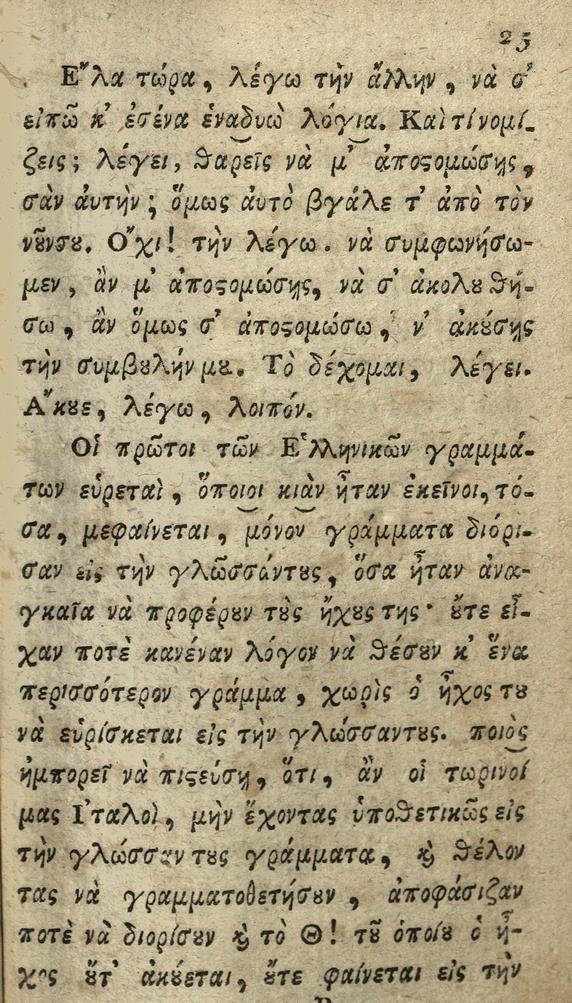 25
Ε῎λα τώρα, λέγω τὴν ἄλλην, νὰ σ᾽
εἰπῶ κ᾽ ἐσένα ἑναδυὼ λόγια. Καὶ τίνομί-
ζεις; λέγει, θαρεῖς νὰ μ᾽ ἀποϛομώσῃς,
σὰν ἀυτὴν; ὅμως ἀυτὸ βγάλε τ᾽ ἀπὸ τὸν
νȣ͂νσȣ. Ο῎χι! τὴν λέγω. νὰ συμφωνήσω-
μεν, ἂν μ᾽ ἀποϛομώσῃς, νὰ σ᾽ ἀκολȣθή-
σω, ἂν ὅμως σ᾽ ἀποϛομώσω, ν᾽ ἀκȣ́σῃς
τὴν συμβȣλήν μȣ. Τὸ δέχομαι, λέγει.
Α῎κȣε, λέγω, λοιπόν.
Οἱ πρῶτοι τῶν Ε῾λληνικῶν γραμμά-
των εὑρεταὶ, ὅποιοι κιὰν ἦταν ἐκεῖνοι, τό-
σα, μεφαίνεται, μόνον γράμματα διόρι-
σαν εἰς τὴν γλῶσσάντȣς, ὅσα ἦταν ἀνα-
γκαῖα νὰ προφέρȣν τȣ̀ς ἤχȣς της· ȣ̓́τε εἶ-
χαν ποτὲ κανέναν λόγον νὰ θέσȣν κ᾽ ἕνα
περισσότερον γράμμα, χωρὶς ὁ ἦχος τȣ
νὰ εὑρίσκεται εἰς τὴν γλώσσαντȣς. ποιὸς
ἠμπορεῖ νὰ πιϛεύσῃ, ὅτι, ἂν οἱ τωρινοί
μας Ι᾽ταλοὶ, μὴν ἔχοντας ὑποθετικῶς εἰς
τὴν γλώσσαν τȣς γράμματα, ϗ̀ θέλον
τας νὰ γραμματοθετήσȣν, ἀποφάσιζαν
ποτὲ νὰ διορίσȣν ϗ̀ τὸ Θ! τȣ͂ ὁποίȣ ὁ ἦ-
χος ȣ̓́τ᾽ ἀκȣ́εται, ȣ̓́τε φαίνεται εἰς τὴν